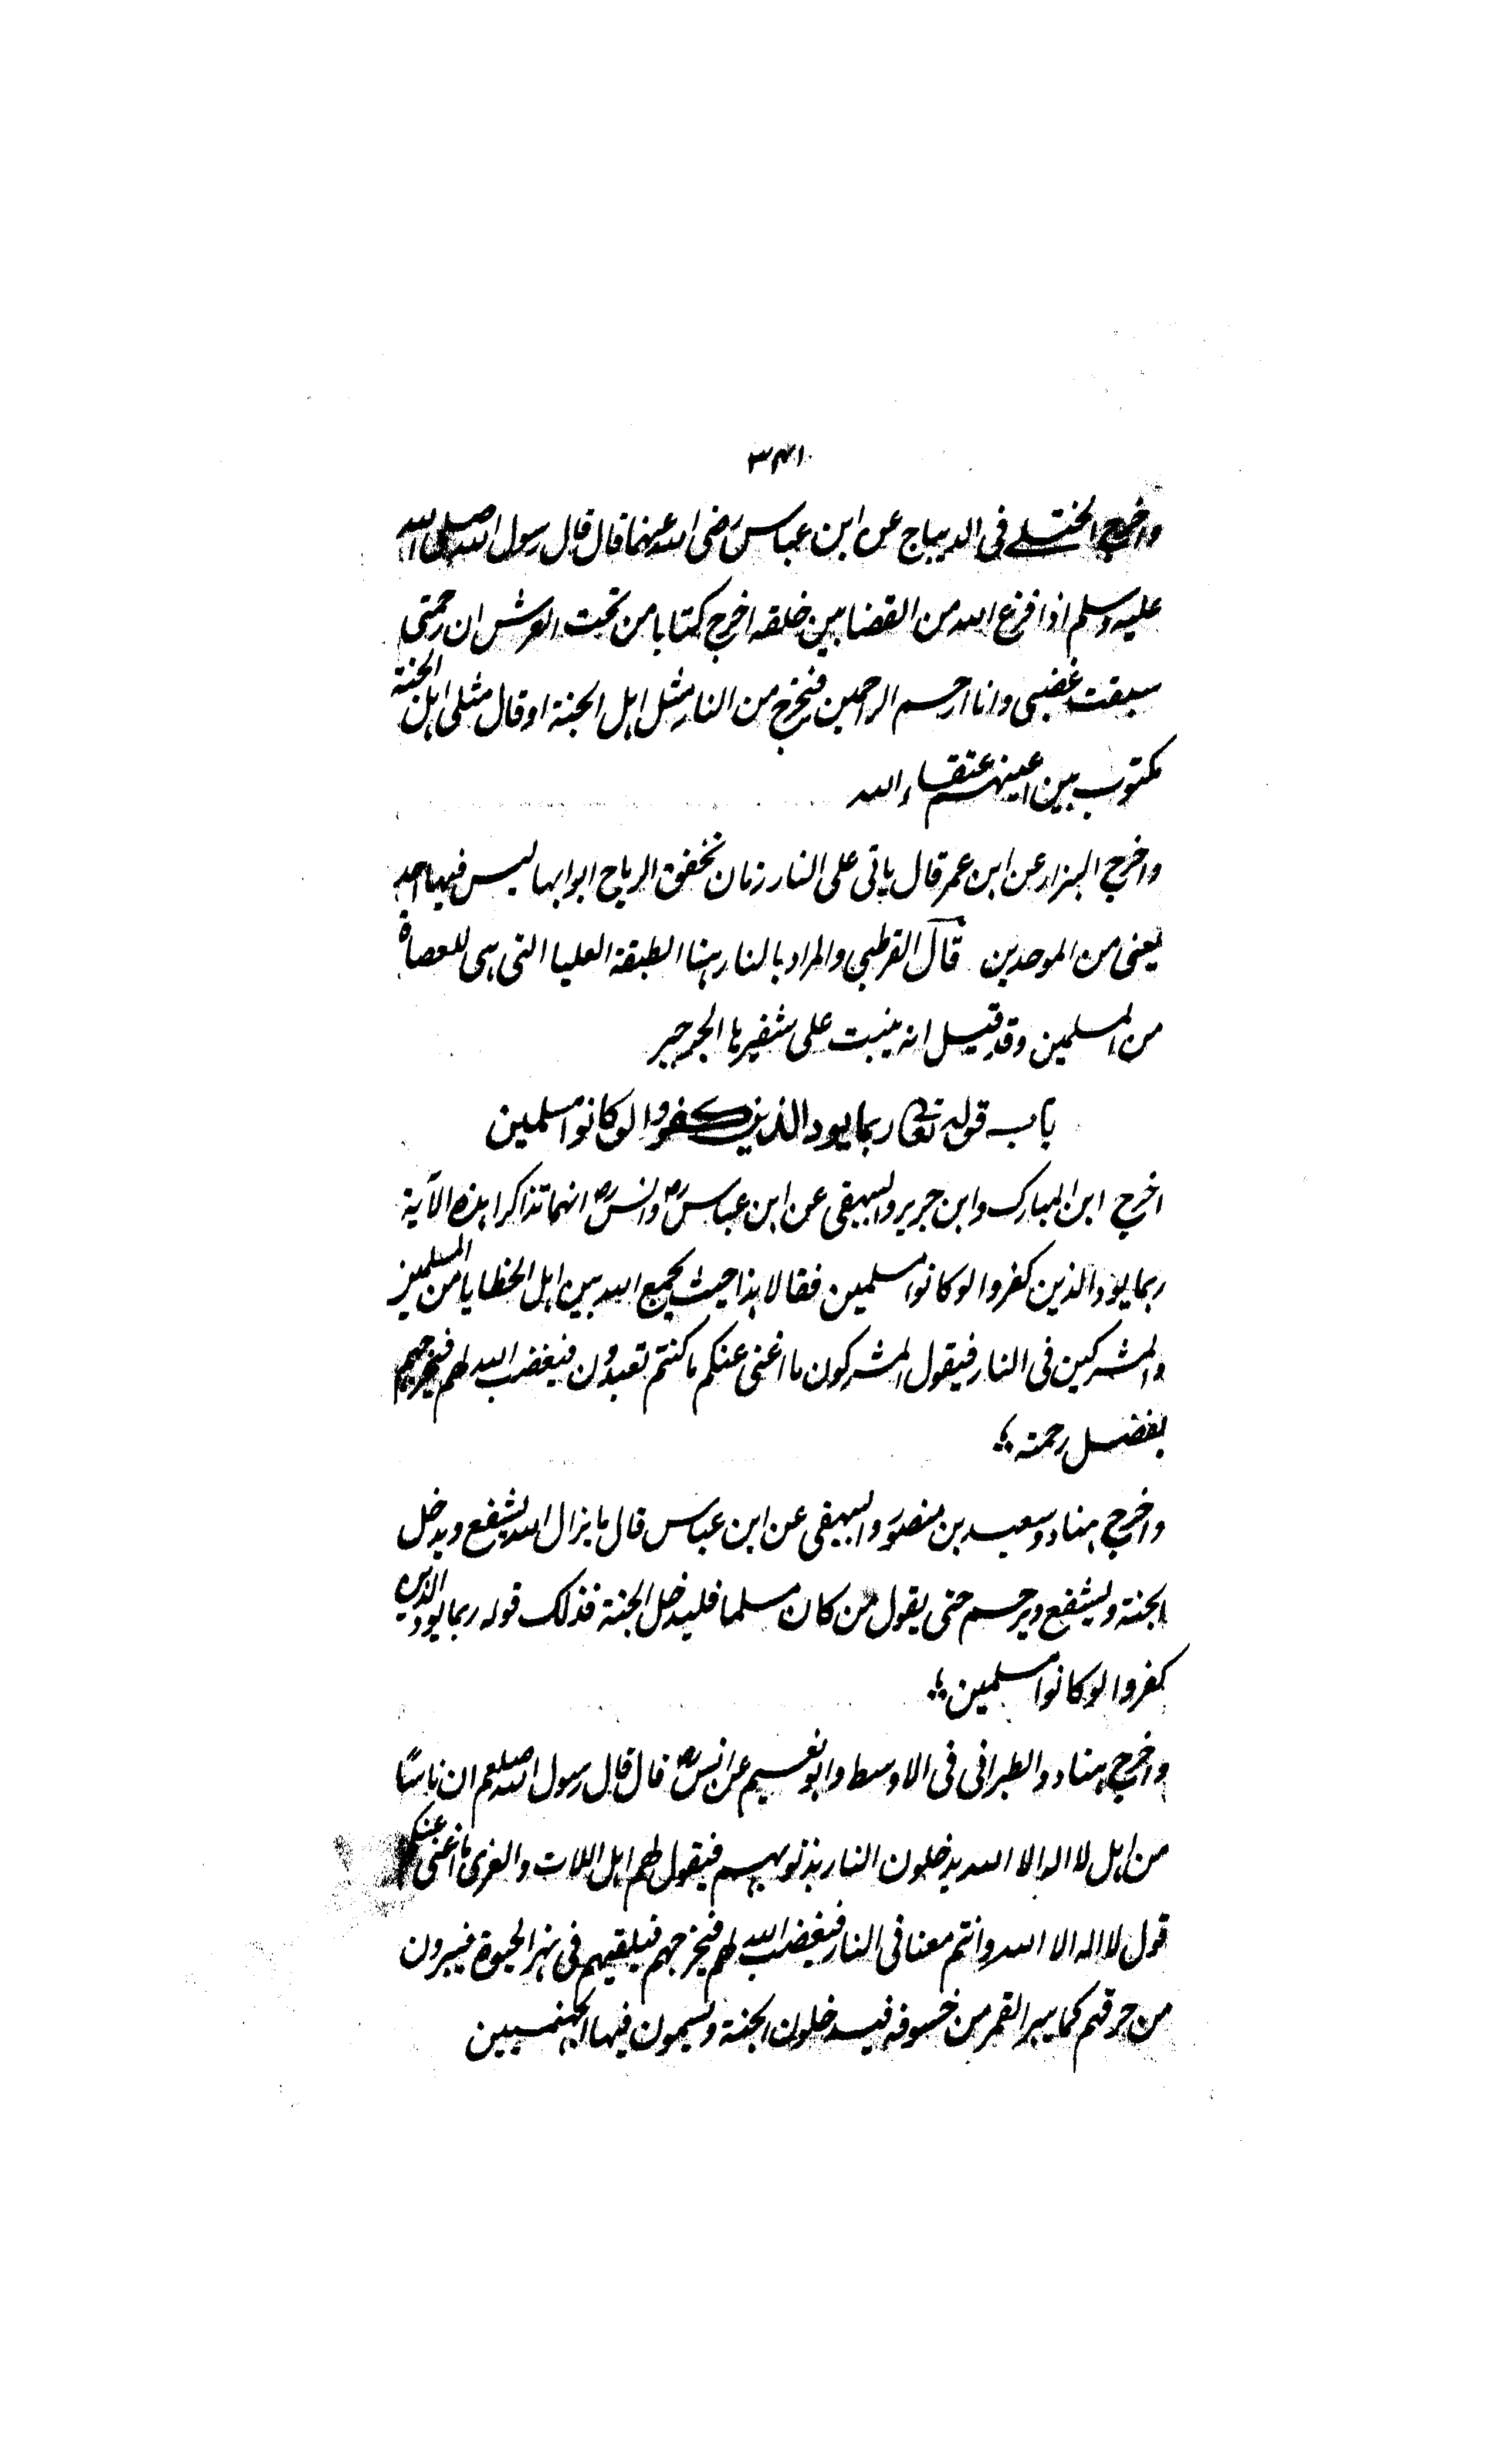 ۳۴۱
واخرج الختلے فی الدیباج عن ابن عباس رضی اللہ عنهما قال قال رسول اللہ صلی اللہ
علیہ وسلم اذا فرغ اللہ من القضا بین خلقہ اخرج کتابا من تحت العرش ان رحمتی
سبقت غضبی وانا ارحم الراحمین فیخرج من النار مثل اہل الجنۃ او قال مثلی اہل الجنۃ
مکتوب بین اعینہم عتقاء اللہ
واخرج البزار عن ابن عمر قال یاتی علی النار زمان تخفق الریاح ابوابہا لیس فیہا احد
یعنی من الموحدین قال القرطبی والمراد بالنار ہنا الطبقۃ العلیا التی ہی للعصاۃ
من المسلمین وقد قیل انہ ینبت علی شفیرہا الجرجیر
باب قولہ تعالی ربما یود الذین کفروا لو کانوا مسلمین
اخرج ابن المبارک وابن جریر والبیہقی عن ابن عباسؓ وانسؓ انہما تذاکرا ہذہ الآیۃ
ربما یود الذین کفروا لو کانوا مسلمین فقالا ہذا حیث یجمع اللہ بین اہل الخطایا من المسلمین
والمشرکین فی النار فیقول المشرکون ما اغنی عنکم ما کنتم تعبدون فیغضب اللہ لهم فیخرجہم
بفضل رحمتہ
واخرج ہناد وسعید بن منصور والبیہقی عن ابن عباس قال ما یزال اللہ یشفع ویدخل
الجنۃ ویشفع ویرحم حتی یقول من کان مسلما فلیدخل الجنۃ فذلک قولہ ربما یود الذین
کفروا لو کانوا مسلمین
واخرج ہناد والطبرانی فی الاوسط وابو نعیم عن انسؓ قال قال رسول اللہ صلعم ان ناسًا
من اہل لا الہ الا اللہ یدخلون النار بذنوبہم فیقول لهم اہل اللات والعزی ما اغنی عنکم
قول لا الہ الا اللہ وانتم معنا فی النار فیغضب اللہ لهم فیخرجہم فیلقیہم فی نہر الحیوۃ فیبرون
من حرقہم کما یبر القمر من خسوفہ فیدخلون الجنۃ ویسمون فیہا الجہنمیین